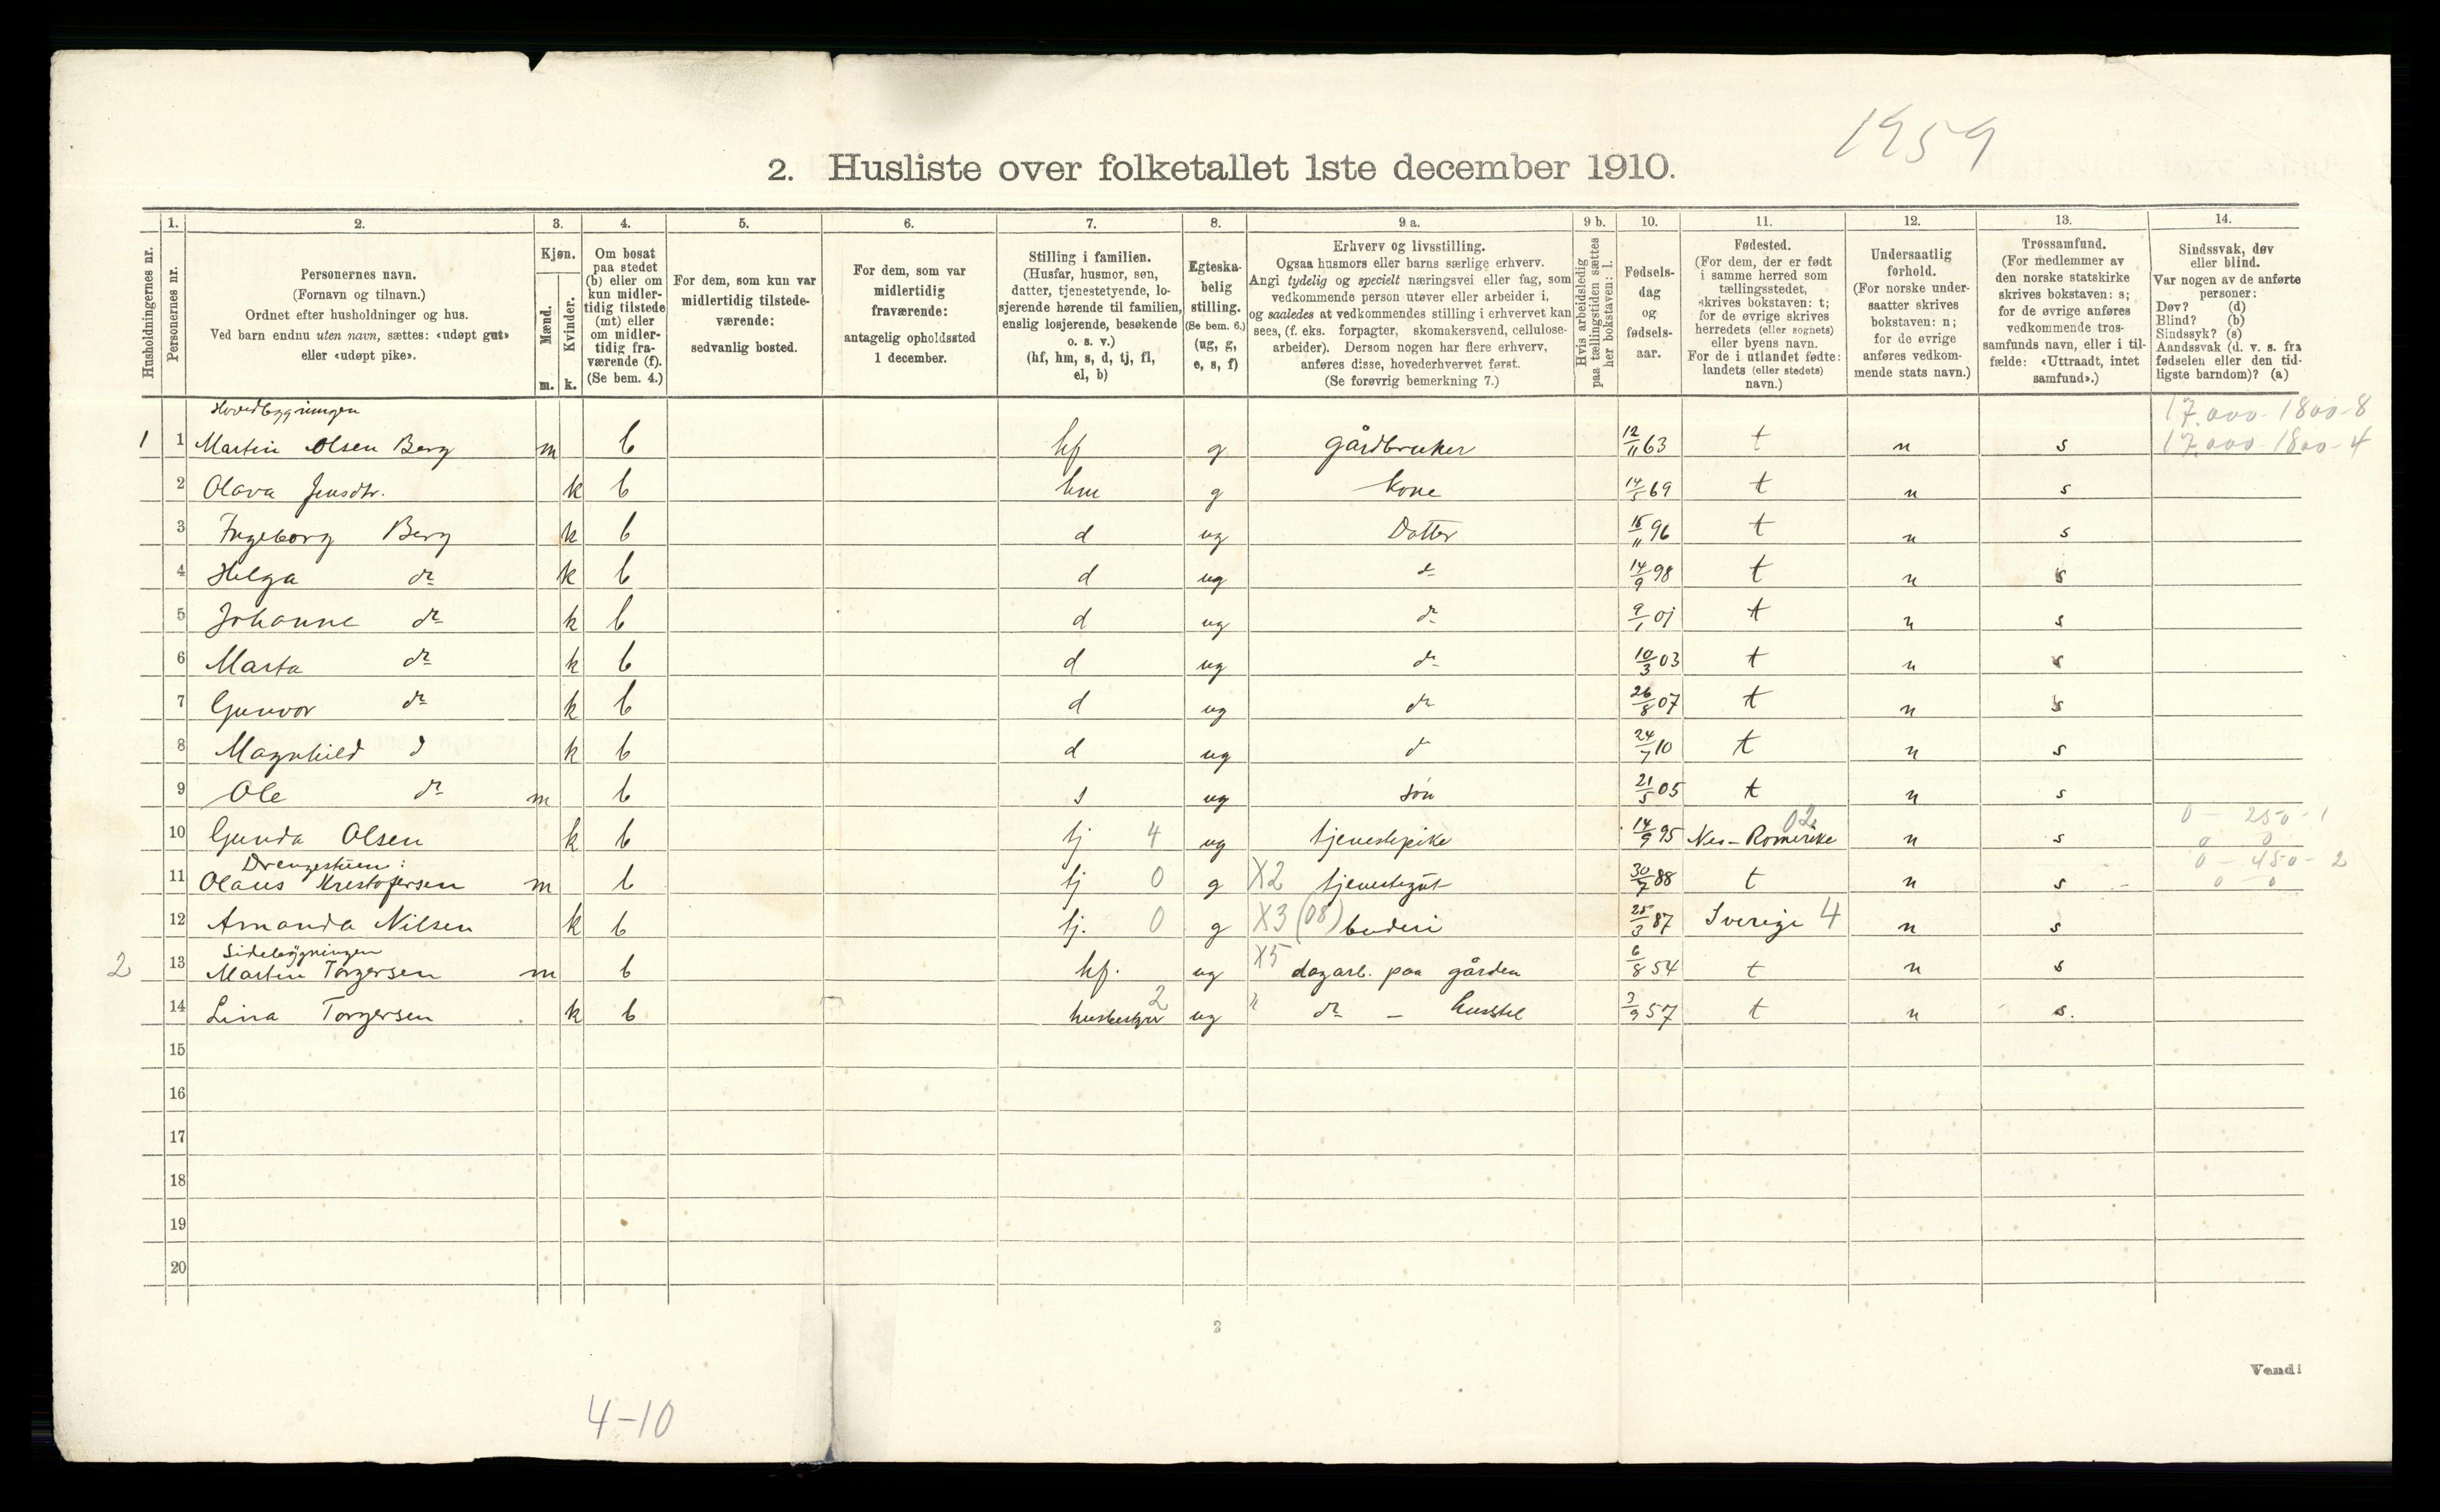 1959
2. Husliste over folketallet 1ste december 1910.
1. 2. 3. 4. 5. 6. 7. 8. 9 a. 9 b. 10. 11. 12. 13. 14.
Husholdningernes nr.
Personernes nr.
Personernes navn.
(Fornavn og tilnavn.)
Ordnet efter husholdninger og hus.
Ved barn endnu uten navn, sættes: «udøpt gut»
eller «udøpt pike».
Kjøn.
Mænd.
m.
Kvinder.
k.
Om bosat
paa stedet
(b) eller om
kun midler-
tidig tilstede
(mt) eller
om midler-
tidig fra-
værende (f).
(Se bem. 4.)
For dem, som kun var
midlertidig tilstede-
værende:
sedvanlig bosted.
For dem, som var
midlertidig
fraværende:
antagelig opholdssted
1 december.
Stilling i familien.
(Husfar, husmor, søn,
datter, tjenestetyende, lo-
sjerende hørende til familien,
enslig losjerende, besøkende
o. s. v.)
(hf, hm, s, d, tj, fl,
el, b)
Egteska-
belig
stilling.
(Se bem. 6.)
(ug, g,
e, s, f)
Erhverv og livsstilling.
Ogsaa husmors eller barns særlige erhverv.
Angi tydelig og specielt næringsvei eller fag, som
vedkommende person utøver eller arbeider i,
og saaledes at vedkommendes stilling i erhvervet kan
sees, (f. eks. forpagter, skomakersvend, cellulose-
arbeider). Dersom nogen har flere erhverv,
anføres disse, hovederhvervet først.
(Se forøvrig bemerkning 7.)
Hvis arbeidsledig
paa tællingstiden sættes
her bokstaven: l.
Fødsels-
dag
og
fødsels-
aar.
Fødested.
(For dem, der er født
i samme herred som
tællingsstedet,
skrives bokstaven: t;
for de øvrige skrives
herredets (eller sognets)
eller byens navn.
For de i utlandet fødte:
landets (eller stedets)
navn.)
Undersaatlig
forhold.
(For norske under-
saatter skrives
bokstaven: n;
for de øvrige
anføres vedkom-
mende stats navn.)
Trossamfund.
(For medlemmer av
den norske statskirke
skrives bokstaven: s;
for de øvrige anføres
vedkommende tros-
samfunds navn, eller i til-
fælde: «Uttraadt, intet
samfund».)
Sindssvak, døv
eller blind.
Var nogen av de anførte
personer:
Døv? (d)
Blind? (b)
Sindssyk? (s)
Aandssvak (d. v. s. fra
fødselen eller den tid-
ligste barndom)? (a)
Hovedbygningen 17.000-1800-8
1 1 Martin Olsen Berg m b hf g gårdbruker 12/11 63 t n s 17.000 1800-4
2 Olava Jensdtr. k b hm g kone 14/5 69 t n s
3 Ingeborg Berg k b d ug Datter 15/11 96 t n s
4 Helga do k b d ug do 14/9 98 t n s
5 Johanne do k b d ug do 9/1 01 t n s
6 Marta do k b d ug do 10/3 03 t n s
7 Gunvor do k b d ug do 26/8 07 t n s
8 Magnhild d k b d ug d 24/7 10 t n s
9 Ole do m b s ug søn 21/5 05 t n s
02 0 - 250 - 1
10 Gunda Olsen k b tj 4 ug tjenestepike 14/9 95 Nes-Romerike n s 0 0
Drengestuen: 0 - 450 - 2
11 Olaus Kristofersen m b tj 0 g X2 tjenestegut 30/7 88 t n s 0 0
12 Amanda Nilsen k b tj. 0 g X3 (08) buderi 25/3 87 Sverige 4 n s
Sidebygningen
2 13 Martin Torgersen m b hf. ug X5 dagarb. paa gården 6/8 54 t n s
14 Lina Torgersen k b husbestyrer 2 ug " do - husstel 3/9 57 t n s.
15
16
17
18
19
20
Vend!
4-10